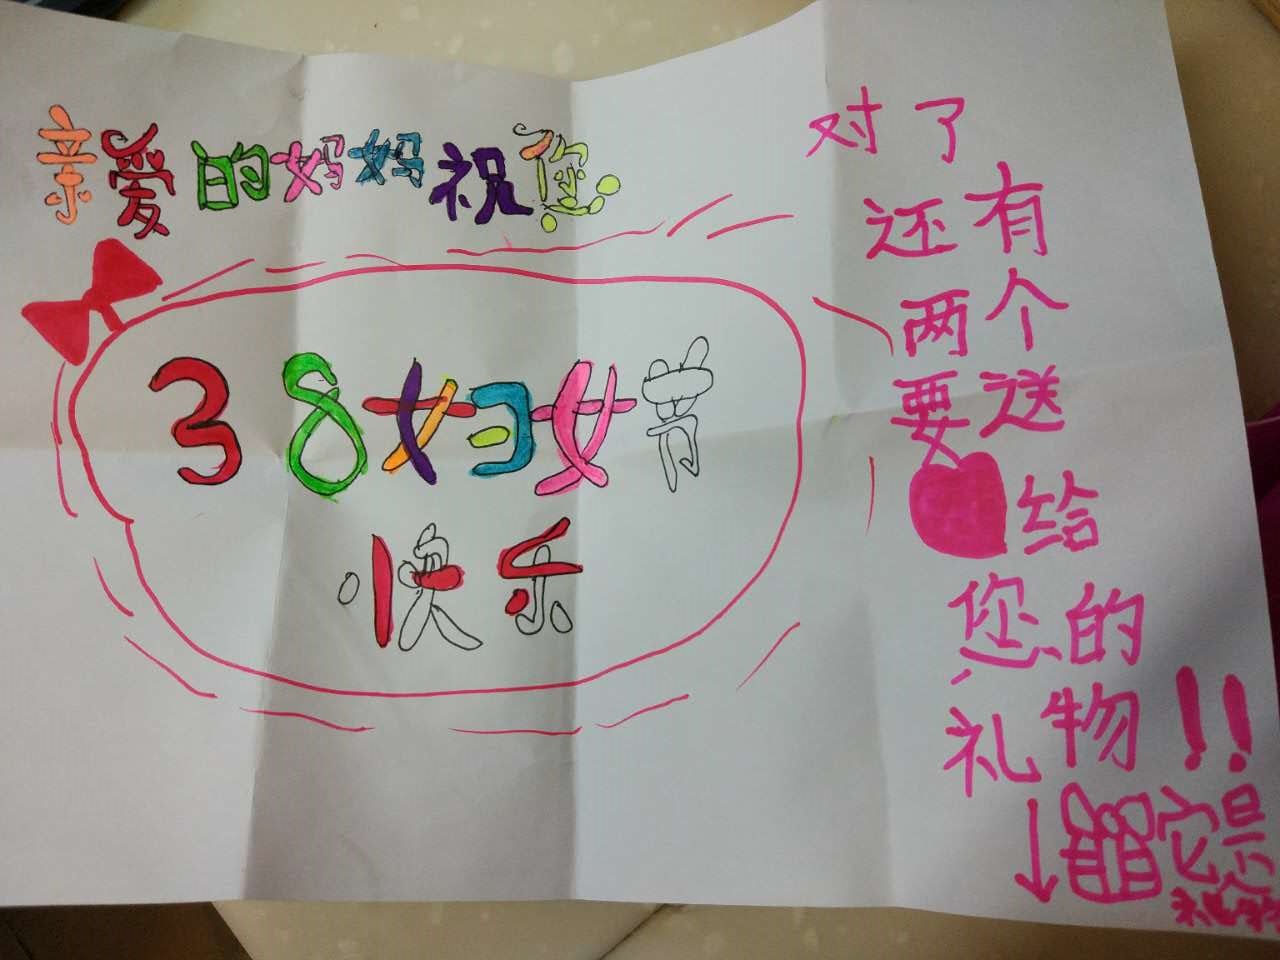 亲爱的妈妈祝您
38妇女节
快乐
对了
还有
两个
要送
给
您的
礼物!!
它是
礼物